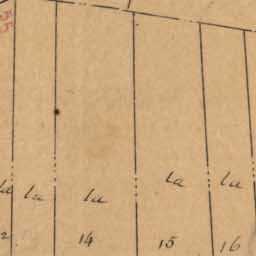 la la la la la
2. 14 15 16